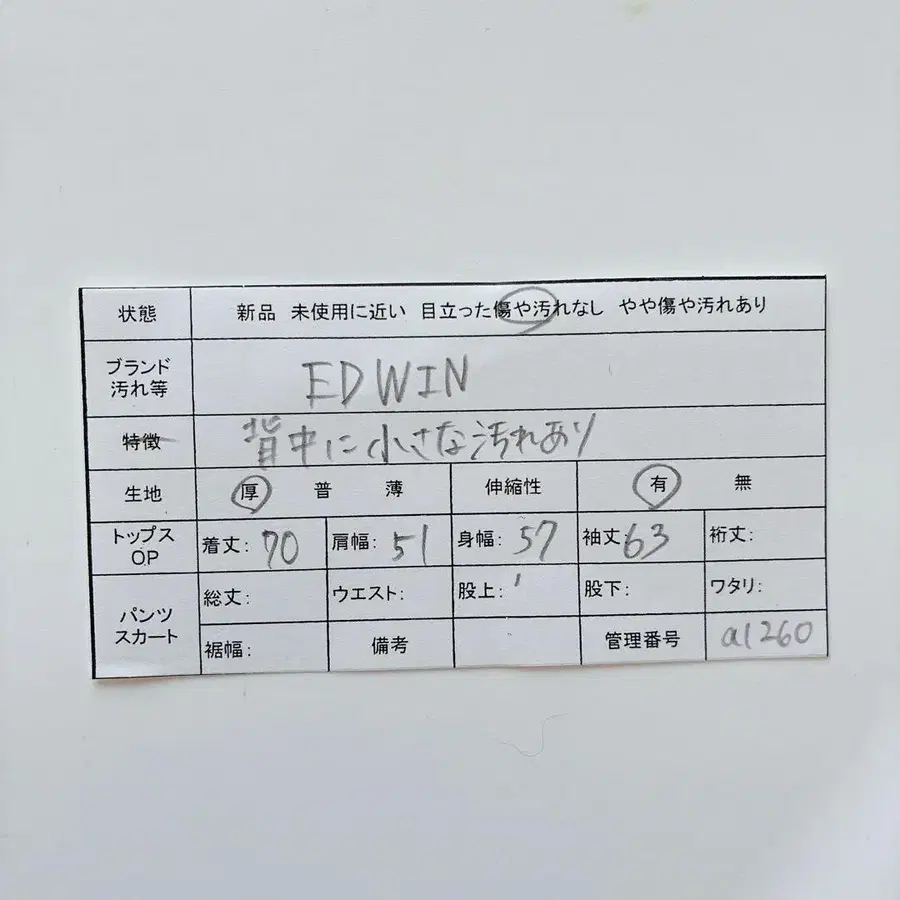 状態 新品 未使用に近い 目立った傷や汚れなし やや傷や汚れあり
ブランド
汚れ等
EDWIN
特徴 背中に小さな汚れあり
生地 厚 普 薄 伸縮性 有 無
トップス
OP
着丈: 70 肩幅: 51 身幅: 57 袖丈: 63 裄丈:
パンツ
スカート
総丈: ウエスト: 股上: 股下: ワタリ:
裾幅: 備考 管理番号 a1260